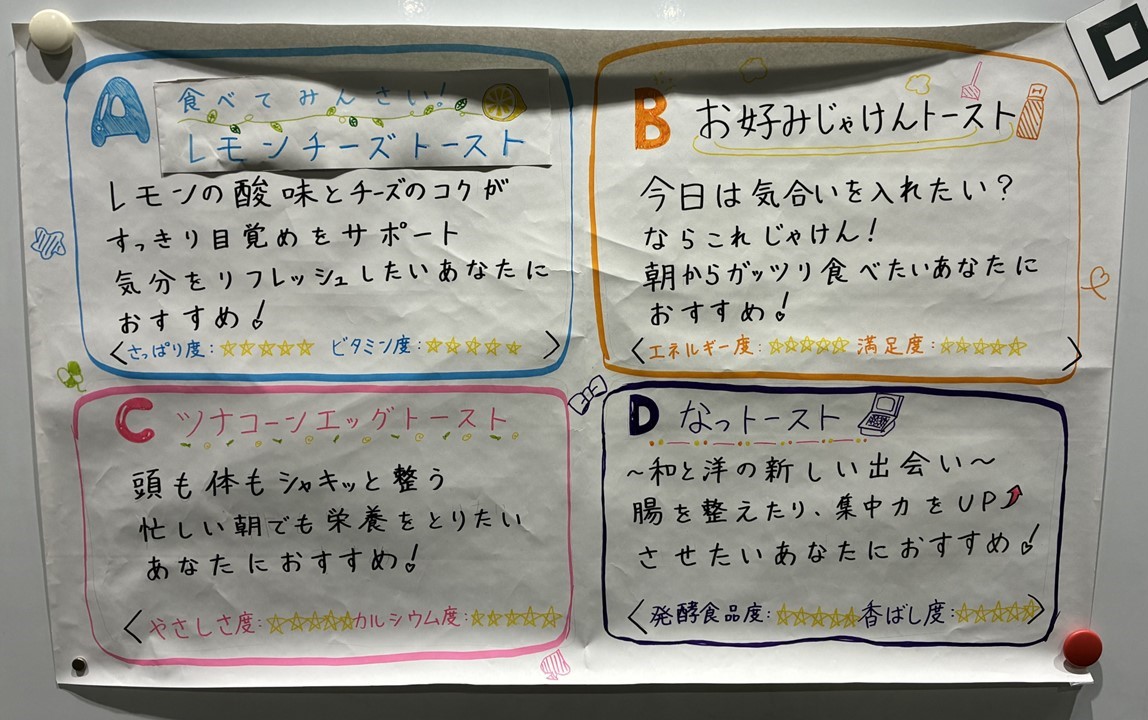 A
食べてみんさい!
レモンチーズトースト
レモンの酸味とチーズのコクが
すっきり目覚めをサポート
気分をリフレッシュしたいあなたに
おすすめ!
〈さっぱり度:☆☆☆☆☆ ビタミン度:☆☆☆☆☆〉
B お好みじゃけんトースト
今日は気合いを入れたい?
ならこれじゃけん!
朝からガッツリ食べたいあなたに
おすすめ!
〈エネルギー度:☆☆☆☆☆ 満足度:☆☆☆☆☆〉
C ツナコーンエッグトースト
頭も体もシャキッと整う
忙しい朝でも栄養をとりたい
あなたにおすすめ!
〈やさしさ度:☆☆☆☆☆カルシウム度:☆☆☆☆☆
D なっトースト
~和と洋の新しい出会い~
腸を整えたり、集中力をUP
させたいあなたにおすすめ!
〈発酵食品度:☆☆☆☆☆香ばし度:☆☆☆☆☆〉